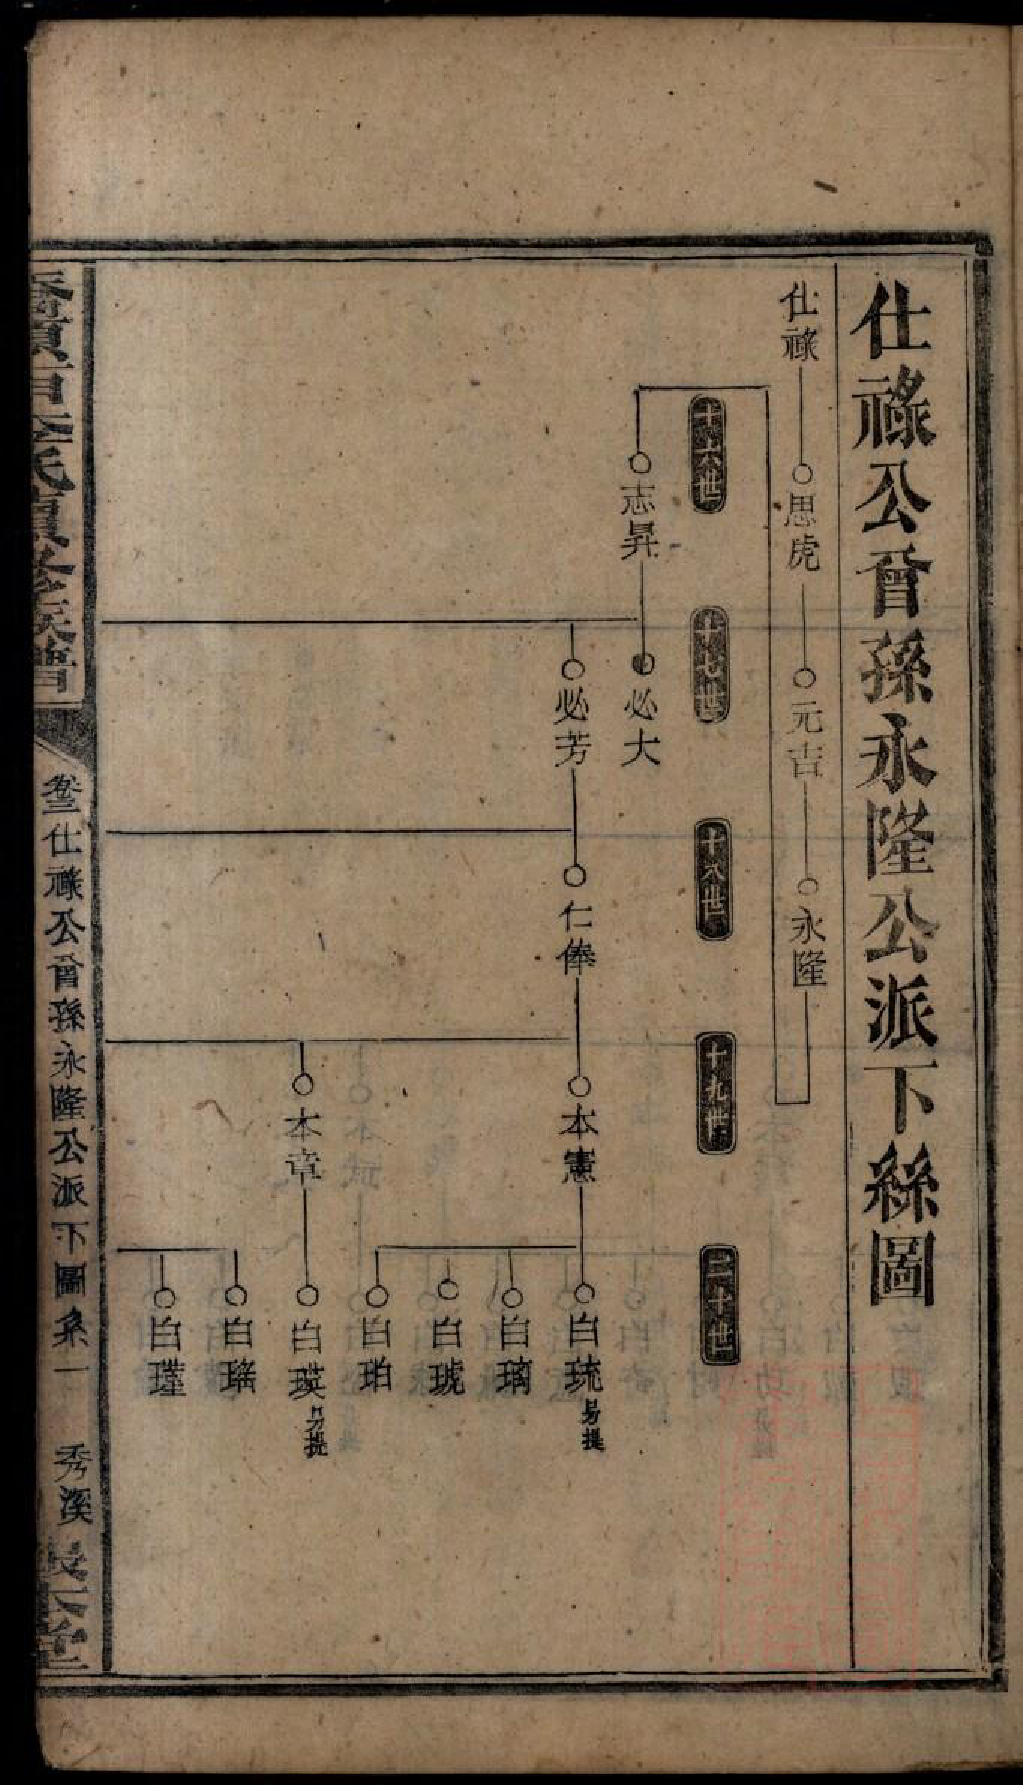 仕祿公曾孫永隆公派下絲圖
仕祿
思虎
元吉
永隆
十六世
十七世
十八世
十九世
二十世
志昇
必大
必芳
仁俸
本憲
本章
白琉 另提
白璃
白琥
白珀
白瑛 另提
白瑤
白瑾
氏續修族譜
卷三仕祿公曾孫永隆公派下圖系一
秀溪